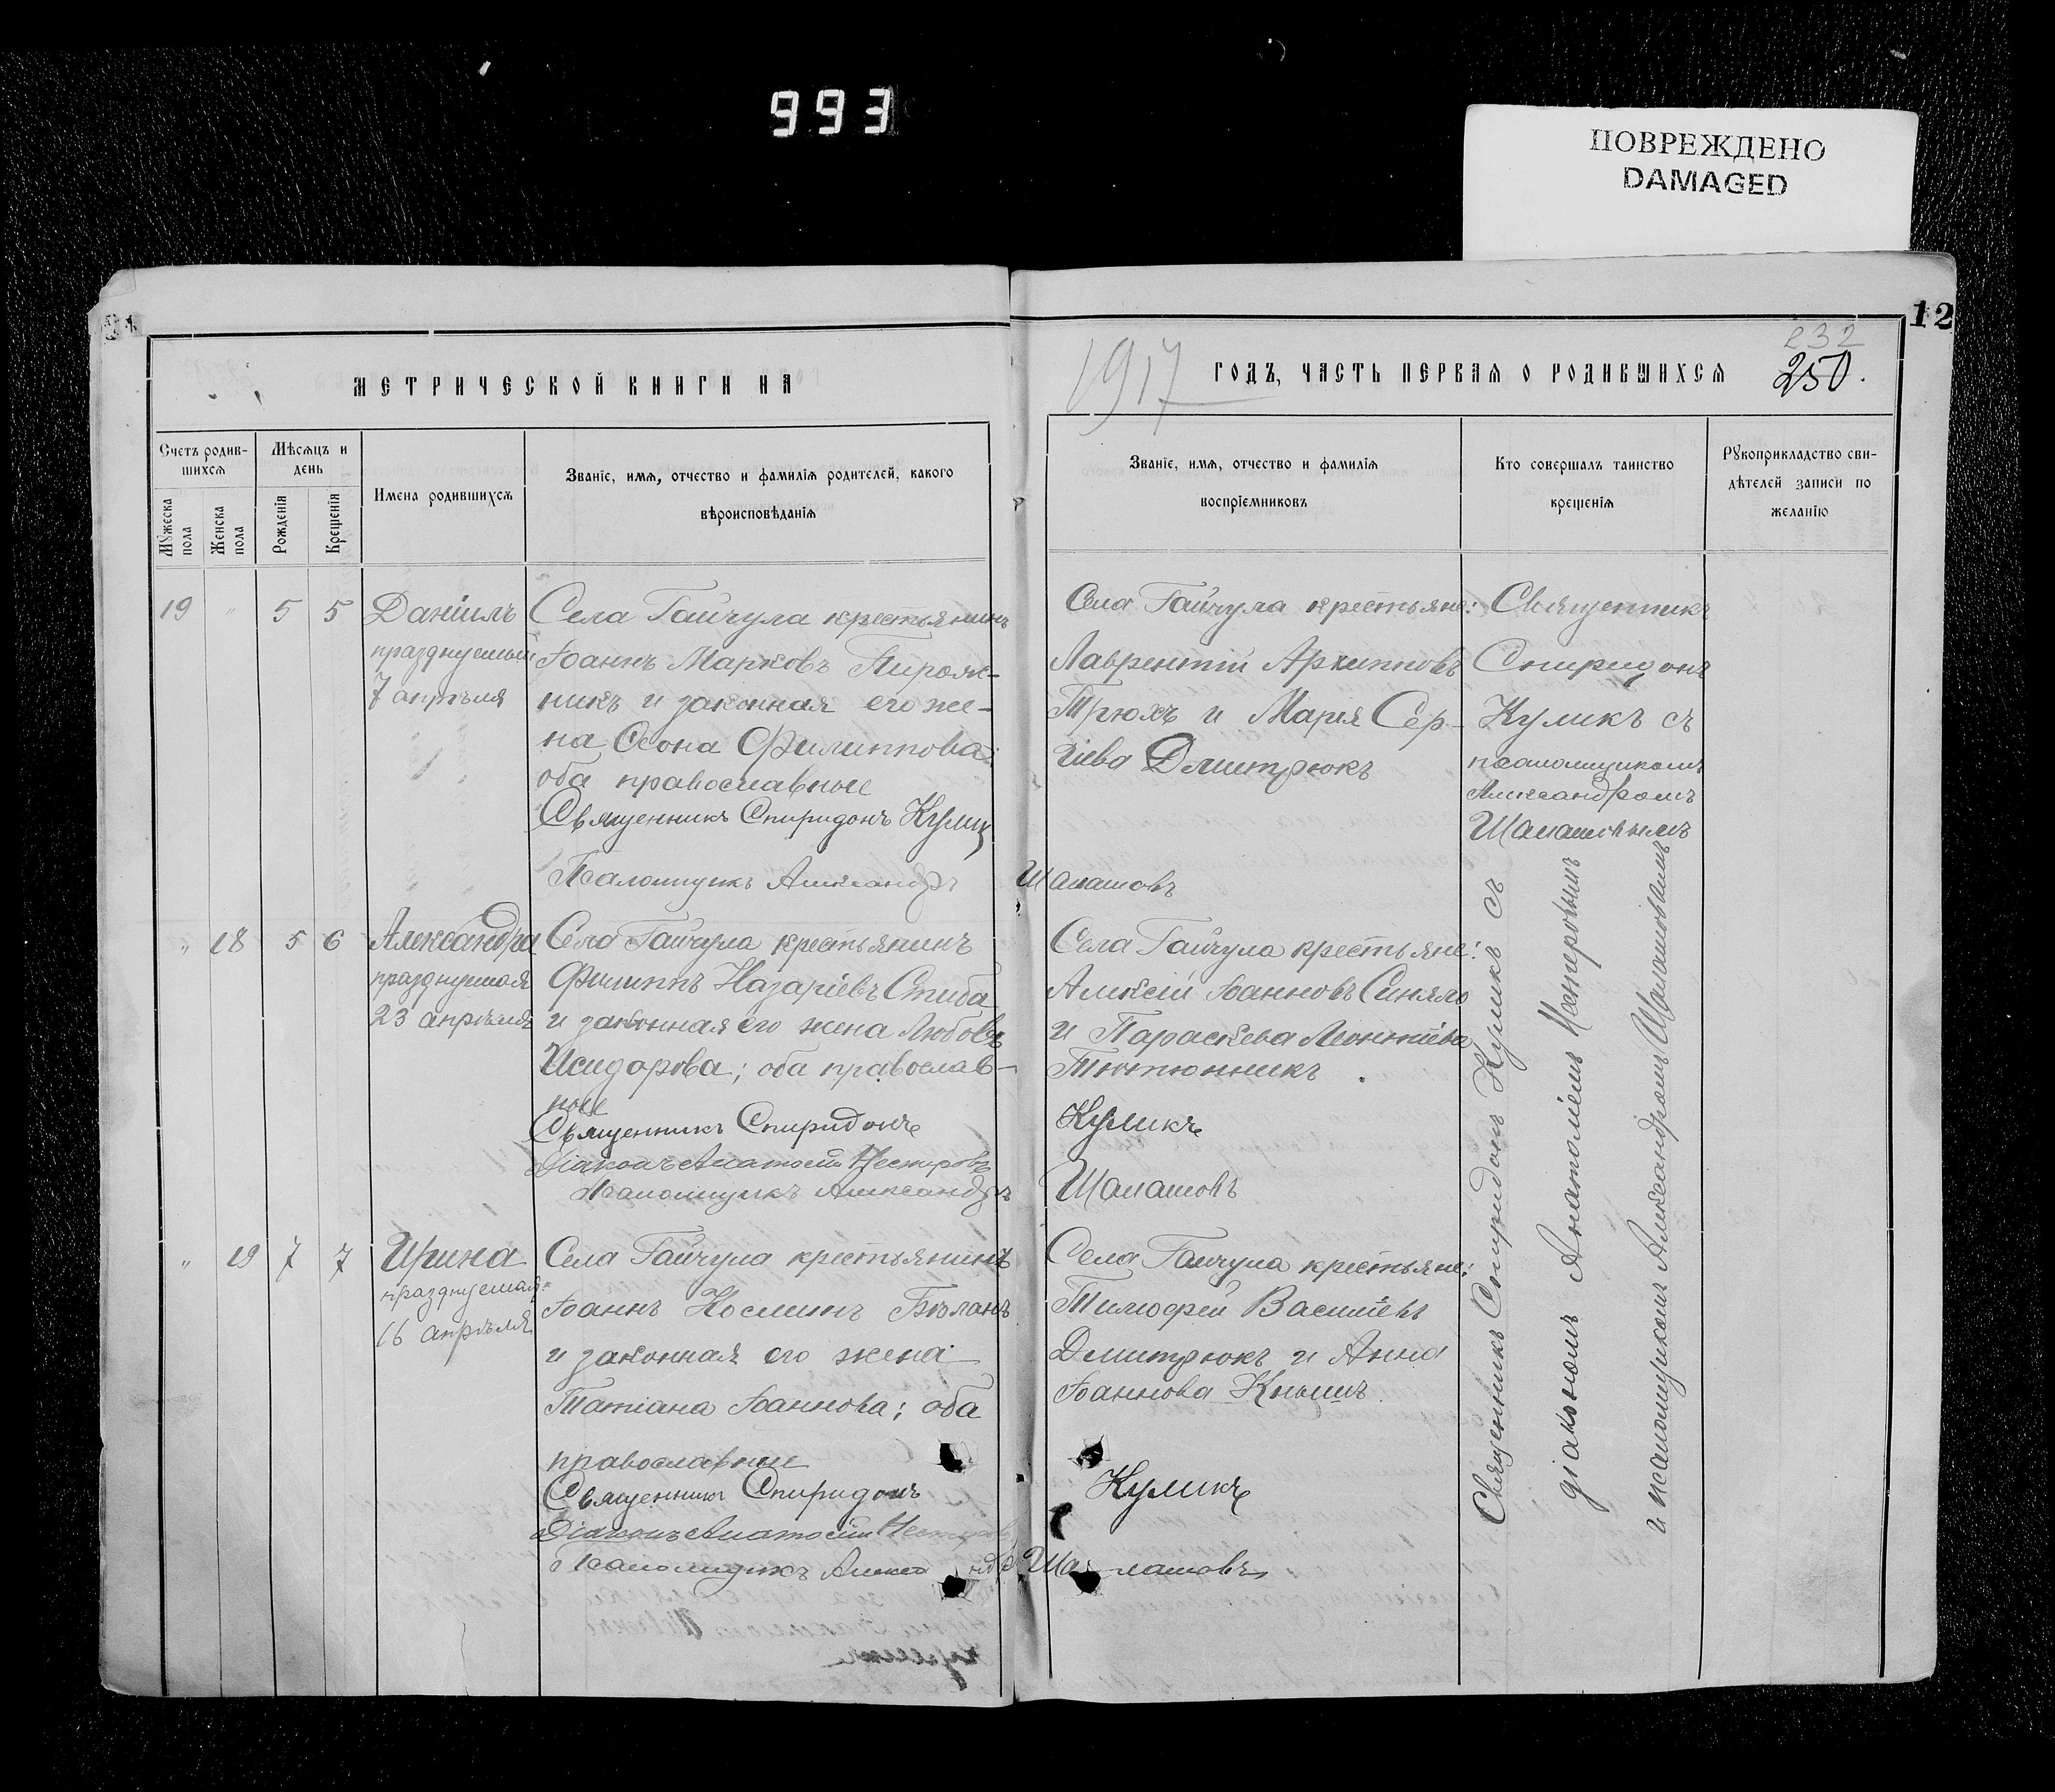 993
ПОВРЕЖДЕНО
DAMAGED
12
МЕТРИЧЕСКОЙ КНИГИ НА
1917
ГОДЪ, ЧАСТЬ ПЕРВАЯ О РОДИВШИХСЯ
232
250.
Счетъ родив-
шихся
Мѣсяцъ и
день
Мужеска
пола
Женска
пола
Рожденія
Крещенія
Имена родившихся
Званіе, имя, отчество и фамилія родителей, какого
вѣроисповѣданія
Званіе, имя, отчество и фамилія
воспріемниковъ
Кто совершалъ таинство
крещенія
Рукоприкладство сви-
дѣтелей записи по
желанію
19 " 5 5
Даніилъ
празднуемый
7 апрѣля
Села Гайчула крестьянинъ
Іоаннъ Марковъ Пирож-
никъ и законная его же-
на Филиппова;
оба православные
Священникъ Спиридонъ Кулик
Псаломщикъ Александръ Шалашовъ
Села Гайчула крестьяне:
Лаврентій Архипповъ
Трюхъ и Марія Сер-
гіева Дмитрюкъ
Священникъ
Спиридонъ
Куликъ съ
псаломщикомъ
Александромъ
Шалашовымъ
" 18 5 6
Александра
празднуемая
23 апрѣля
Села Гайчула крестьянинъ
Филиппъ Назаріевъ Скиба
и законная его жена Любовь
Исидорова; оба православ-
ные
Священникъ Спиридонъ Куликъ
Діаконъ Анатолій Нестеровъ
Псаломщикъ Александръ Шалашовъ
Села Гайчула крестьяне:
Алексій Іоанновъ Синяло
и Параскева Леонтіева
Тютюнникъ
" 19 7 7
Ирина
празднуемая
16 апрѣля
Села Гайчула крестьянинъ
Іоаннъ Косминъ Бѣланъ
и законная его жена
Татіана Іоаннова; оба
православные
Священникъ Спиридонъ Куликъ
Діаконъ Анатолій
Псаломщикъ Шалашовъ
Села Гайчула крестьяне:
Тимофей Василіевъ
Дмитрюкъ и Анна
Іоаннова Кнышъ
Священникъ Спиридонъ Куликъ съ
діакономъ Анатоліемъ Нестеровымъ
и псаломщикомъ Александромъ Шалашовымъ